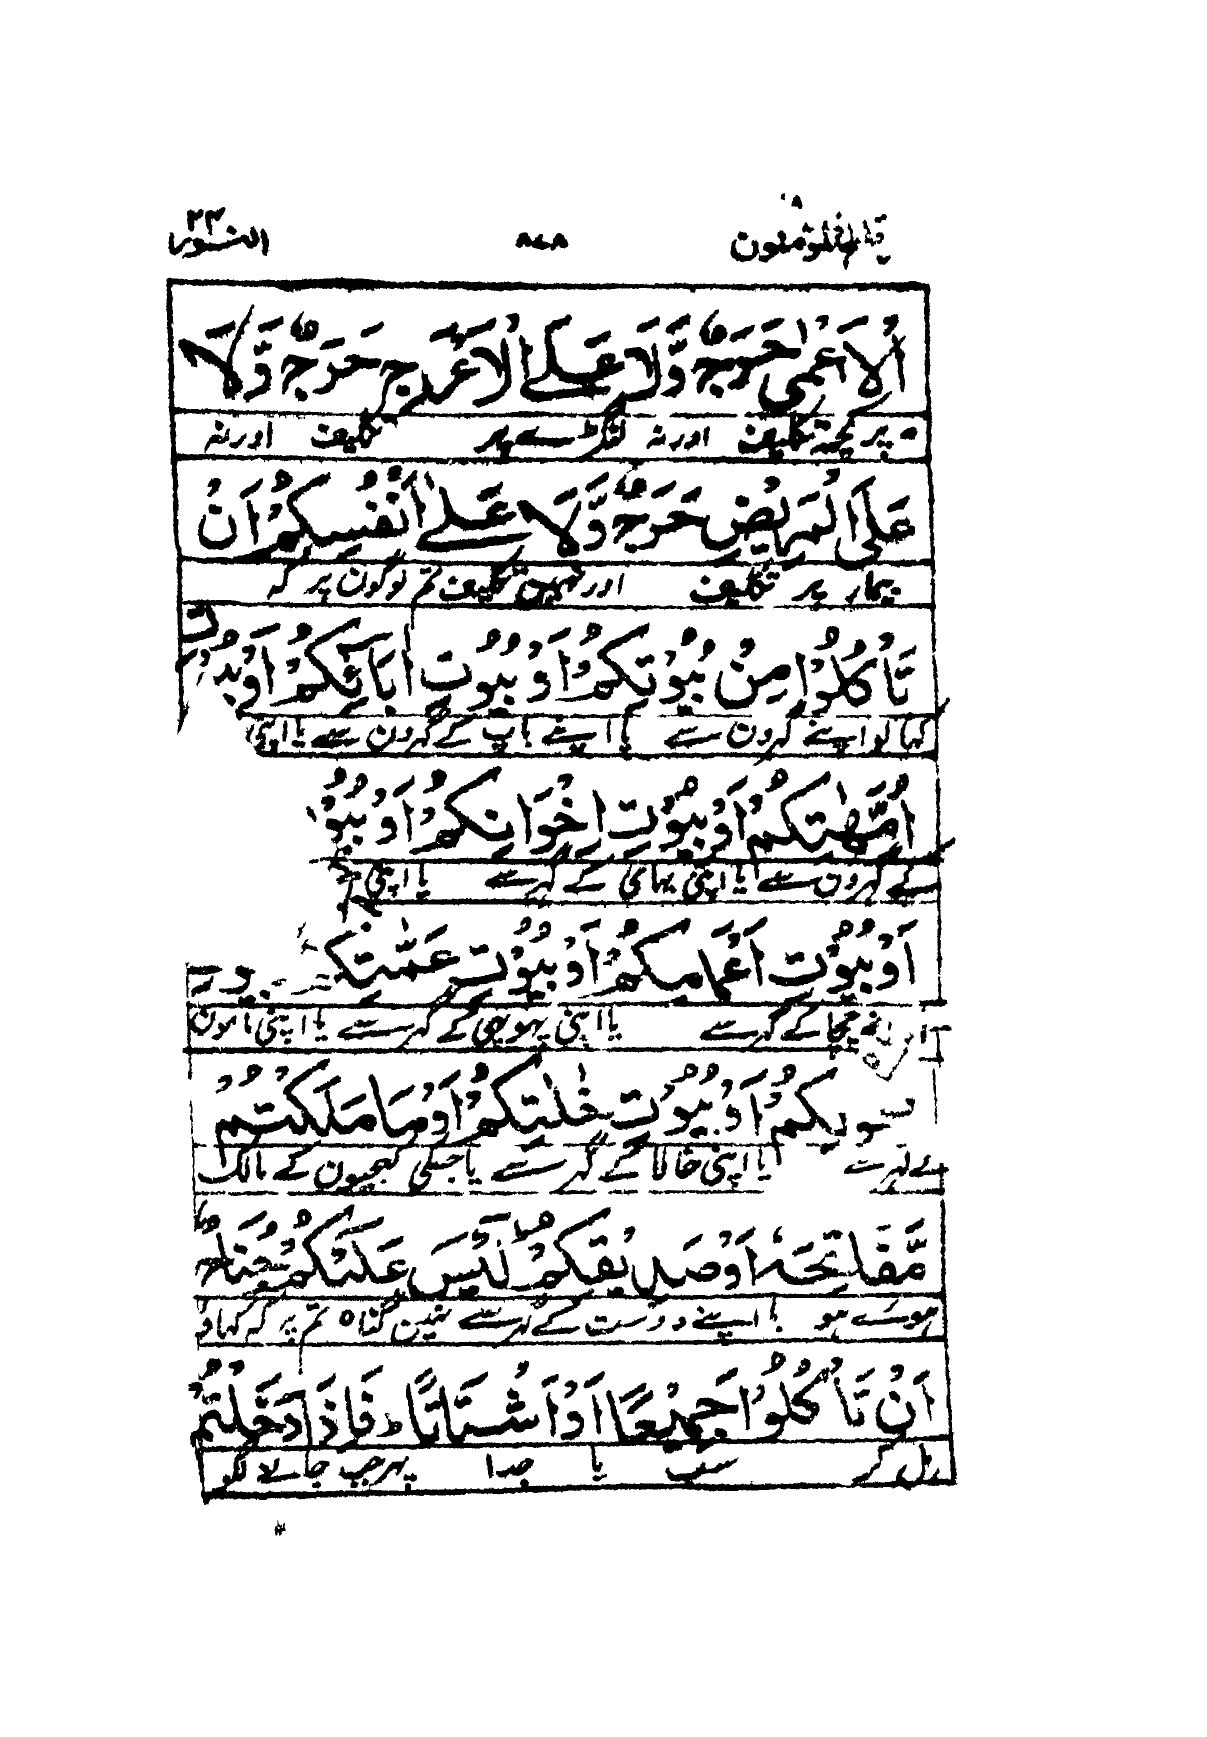 قد افلح المؤمنون ١٨ ٨٤٨ النور ٢٤
الْاَعْمٰى حَرَجٌ وَّلَا عَلَى الْاَعْرَجِ حَرَجٌ وَّلَا
پر کچھ تکلیف اور نہ لنگڑے پر تکلیف اور نہ
عَلَى الْمَرِيْضِ حَرَجٌ وَّلَا عَلٰٓى اَنْفُسِكُمْ اَنْ
بیمار پر تکلیف اور نہیں تکلیف تم لوگون پر کہ
تَاْكُلُوْا مِنْ بُيُوْتِكُمْ اَوْ بُيُوْتِ اٰبَآئِكُمْ اَوْ
کہا لو اپنے گہرون سے یا اپنے باپ کے گہرون سے یا اپنی
اُمَّهٰتِكُمْ اَوْ بُيُوْتِ اِخْوَانِكُمْ اَوْ
کے گہرون سے یا اپنی بہائی کے گہر سے یا اپنی
اَوْ بُيُوْتِ اَعْمَامِكُمْ اَوْ بُيُوْتِ عَمّٰتِكُ
چچا کے گہر سے یا اپنی پہوپہی کے گہر سے یا اپنی مامون
اَوْ بُيُوْتِ خٰلٰتِكُمْ اَوْ مَا مَلَكْتُمْ
گہر سے یا اپنی خالا کے گہر سے یا جسکی کنجیون کے مالک
مَّفَاتِحَهٗ اَوْ صَدِيْقِكُمْ لَيْسَ عَلَيْكُمْ جُنَاحٌ
ہوے ہو یا اپنے دوست کے گہر سے نہین گناہ تم پر کہ کہاؤ
اَنْ تَاْكُلُوْا جَمِيْعًا اَوْ اَشْتَاتًا ط فَاِذَا دَخَلْتُمْ
مل کر سب یا جدا پہر جب جانے لگو